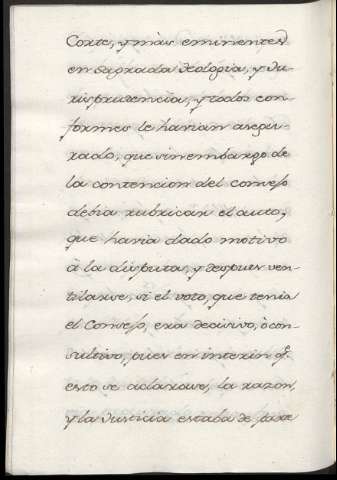 Corte, y màs eminentes
en Sagrada Teologia, y Ju-
risprudencia, y todos con-
formes le havian asegu-
rado, que sinembargo de
la contencion del consejo
debia rubricar el auto,
que havia dado motivo
à la disputa, y despues ven-
tilarse, si el voto, que tenia
el Consejo, era decisivo, ò con-
sultivo, pues en interin q.e
esto se aclarase, la razon,
y la Justicia estaba de parte